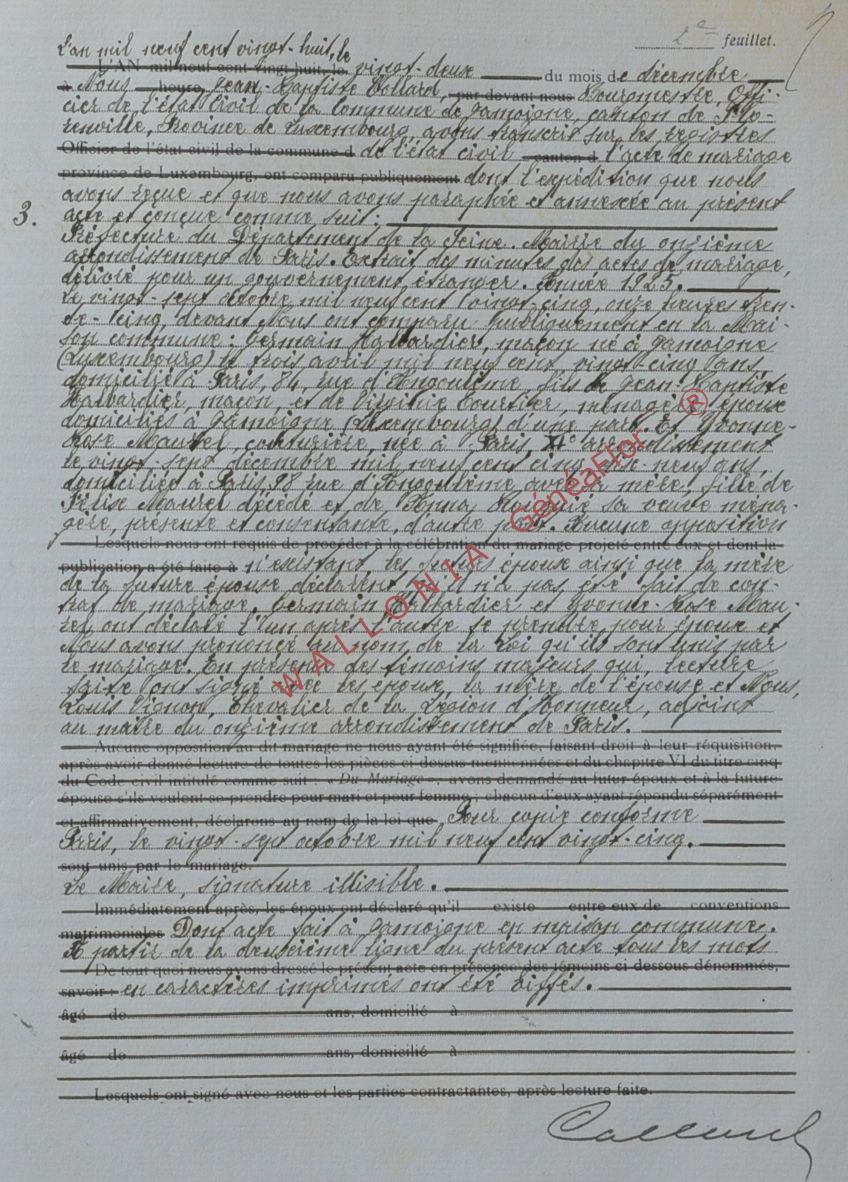 2e feuillet.
L'an mil neuf cent vingt-huit, le
L'AN mil neuf cent vingt huit, le vingt-deux du mois de décembre
à Nous heure, Jean-Baptiste Collard, par devant nous Bourgmestre, Offi-
cier de l'état civil de la Commune de Jamoigne, canton de Flo-
renville, Province de Luxembourg, avons transcrit sur les registres
Officier de l'état civil de la commune d de l'état civil canton d l'acte de mariage
province de Luxembourg, ont comparu publiquement dont l'expédition que nous
avons reçue et que nous avons paraphée et annexée au présent
3.
acte et conçue comme suit:
Préfecture du Département de la Seine. Mairie du onzième
arrondissement de Paris. Extrait des minutes des actes de mariage,
délivré pour un gouvernement étranger. Année 1925.
Le vingt-sept octobre mil neuf cent vingt-cinq, onze heures tren-
te-cinq, devant Nous ont comparu publiquement en la Mai-
son commune: Germain Halbardier, maçon né à Jamoigne
(Luxembourg) le trois avril mil neuf cent, vingt-cinq ans,
domicilié à Paris, 84, rue d'Angoulême, fils de Jean-Baptiste
Halbardier, maçon, et de Virginie Courtier, ménagère, époux
domiciliés à Jamoigne (Luxembourg) d'une part. Et Yvonne-
Rose Maurel, couturière, née à Paris, XIe arrondissement
le vingt-sept décembre mil neuf cent cinq, dix-neuf ans,
domiciliée à Paris, 98 rue d'Angoulême avec sa mère, fille de
Félix Maurel décédé et de Anna sa veuve ména-
gère, présente et consentante, d'autre part. Aucune opposition
Lesquels nous ont requis de procéder à la célébration du mariage projeté entre eux et dont la
publication a été faite à n'existant, les futurs époux ainsi que la mère
de la future épouse déclarent qu'il n'a pas été fait de con-
trat de mariage. Germain Halbardier et Yvonne-Rose Mau-
rel ont déclaré l'un après l'autre se prendre pour époux et
Nous avons prononcé au nom de la Loi qu'ils sont unis par
le mariage. En présence des témoins majeurs qui, lecture
faite ont signé avec les époux, la mère de l'épouse et Nous,
Louis Vignon, Chevalier de la Légion d'Honneur, adjoint
au maire du onzième arrondissement de Paris.
Aucune opposition au dit mariage ne nous ayant été signifiée, faisant droit à leur réquisition,
après avoir donné lecture de toutes les pièces ci-dessus mentionnées et du chapitre VI du titre cinq
du Code civil intitulé comme suit : « Du Mariage », avons demandé au futur époux et à la future
épouse s'ils veulent se prendre pour mari et pour femme ; chacun d'eux ayant répondu séparément
et affirmativement, déclarons au nom de la loi que Pour copie conforme
Paris, le vingt-sept octobre mil neuf cent vingt-cinq.
sont unis par le mariage.
Le Maire, signature illisible.
Immédiatement après, les époux ont déclaré qu'il existe entre eux de conventions
matrimoniales Dont acte fait à Jamoigne en maison commune.
A partir de la deuxième ligne du présent acte tous les mots
De tout quoi nous avons dressé le présent acte en présence des témoins ci-dessous dénommés,
savoir : en caractères imprimés ont été biffés.
âgé de ans, domicilié à
âgé de ans, domicilié à
Lesquels ont signé avec nous et les parties contractantes, après lecture faite.
Collard
WALLONIA GénéaFlor ®